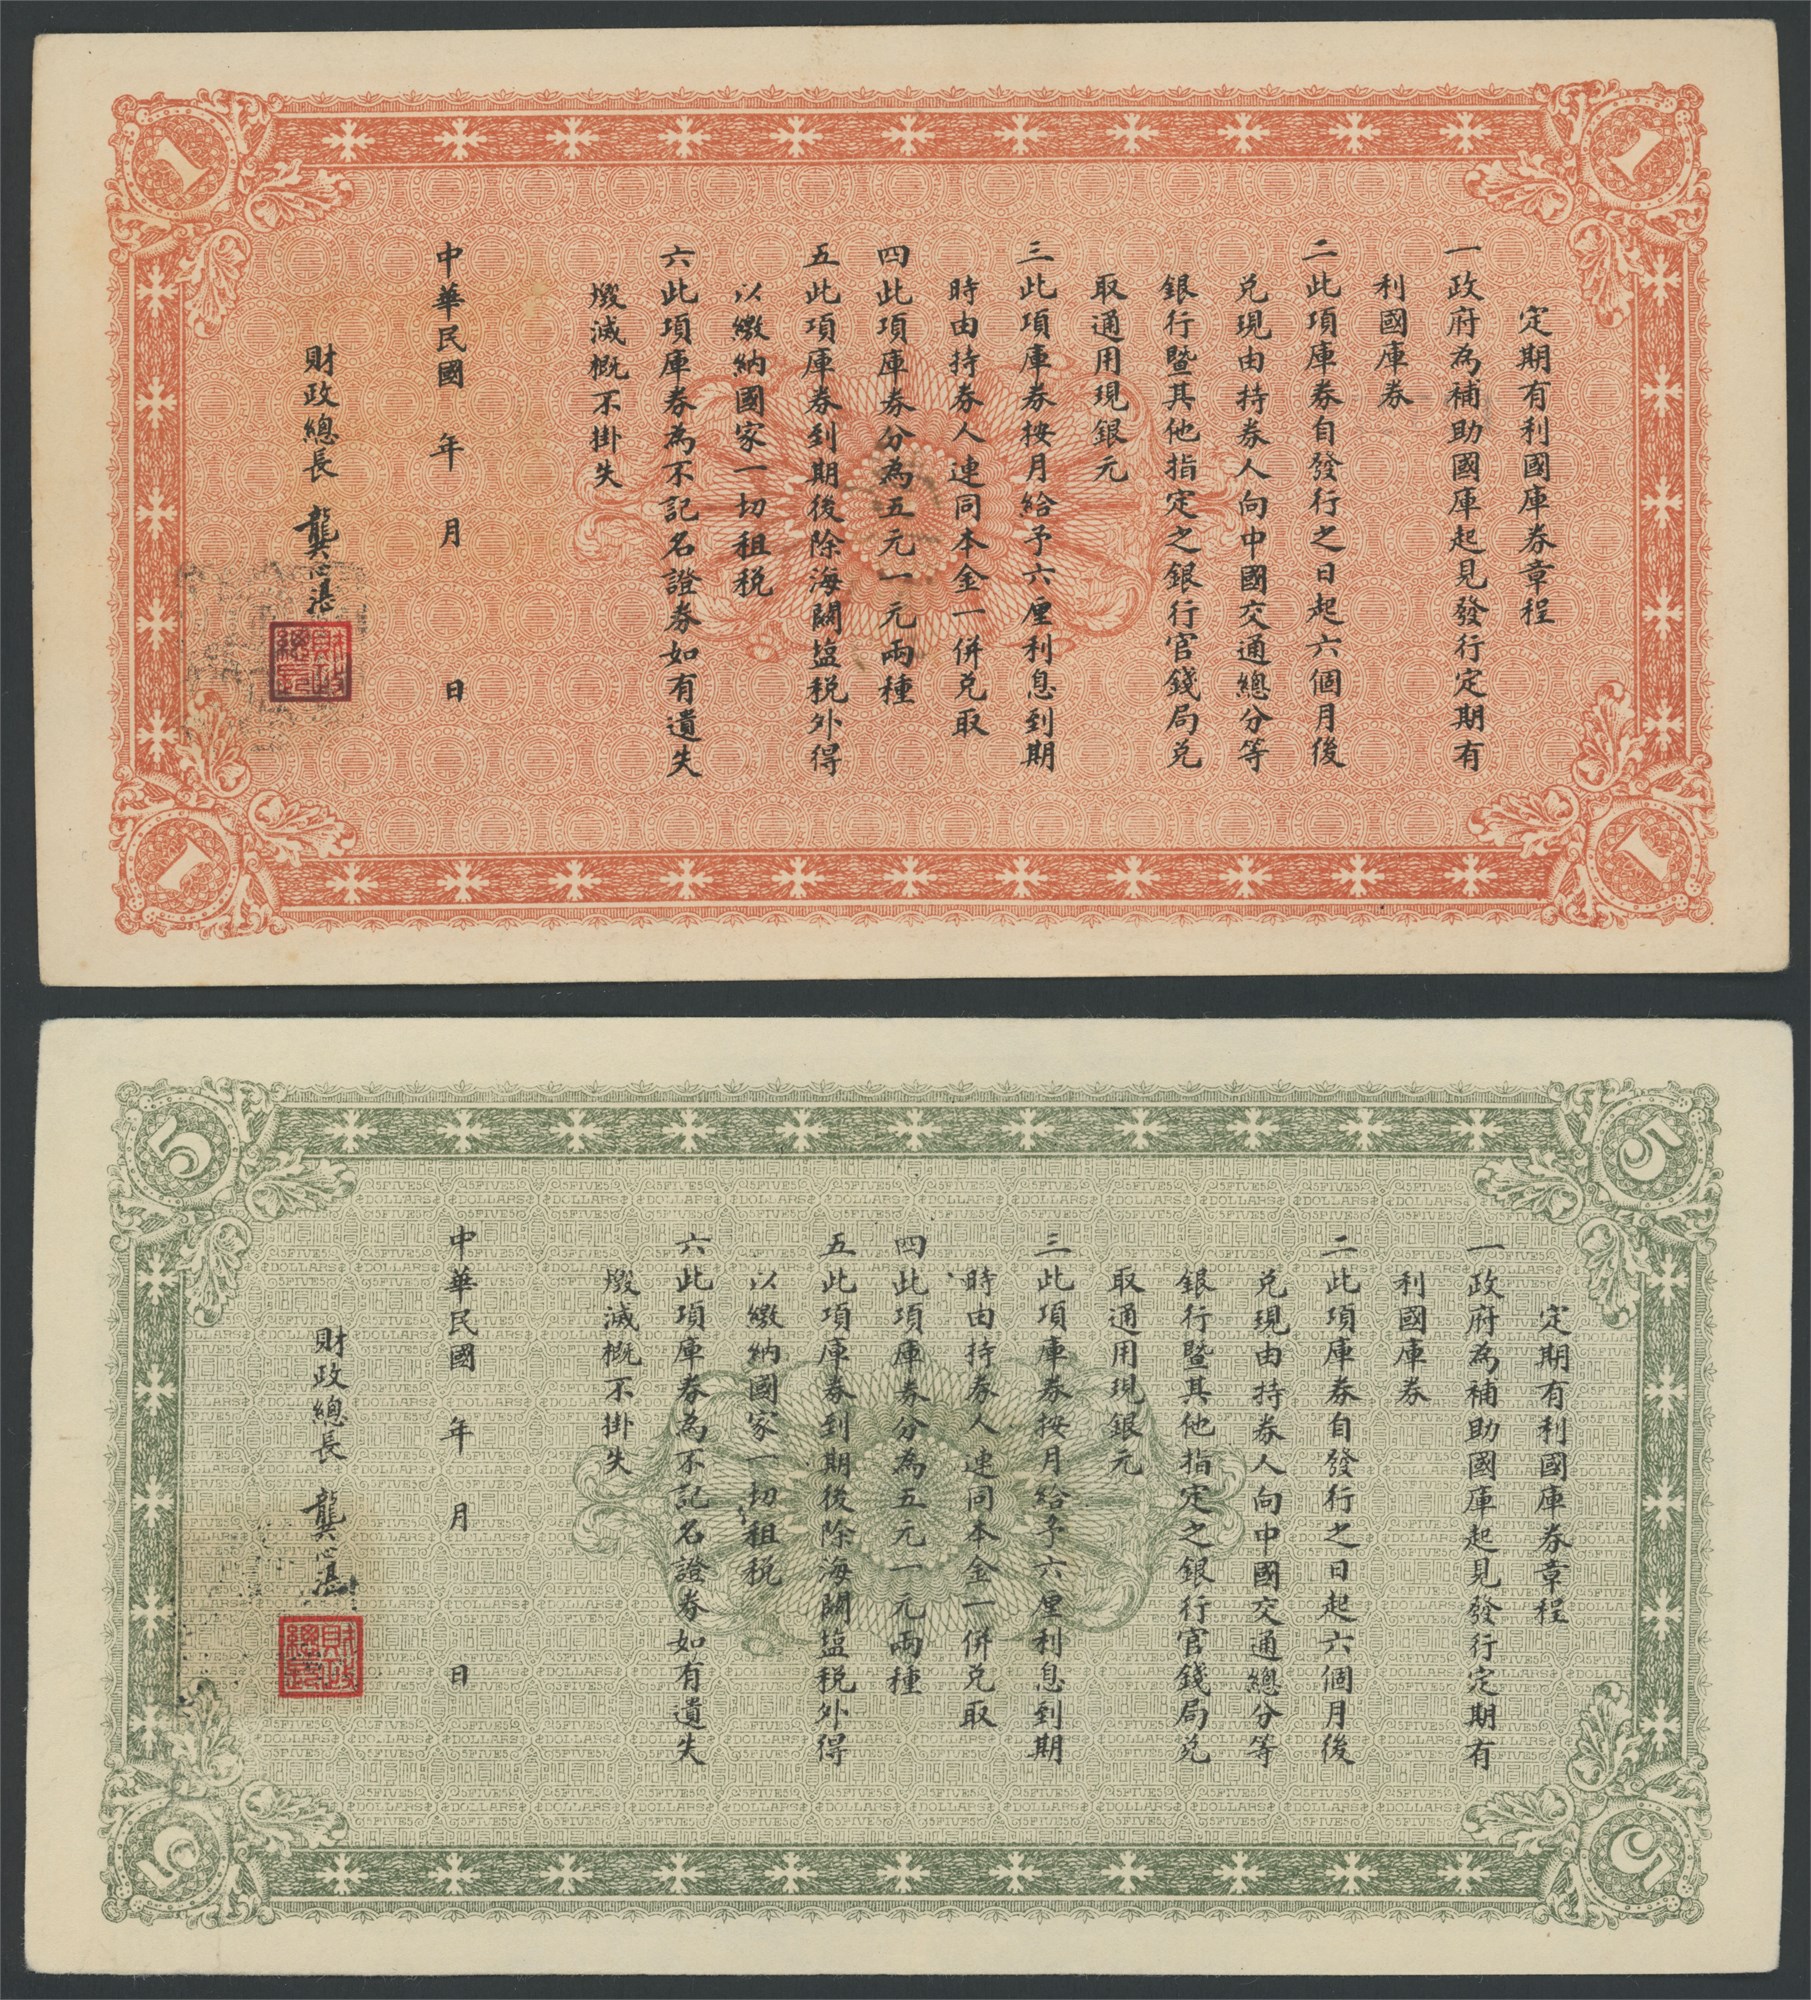 1
1
定期有利國庫券章程
一政府為補助國庫起見發行定期有
利國庫券
二此項庫券自發行之日起六個月後
兌現由持券人向中國交通總分等
銀行暨其他指定之銀行官錢局兌
取通用現銀元
三此項庫券按月給予六厘利息到期
時由持券人連同本金一併兌取
四此項庫券分為五元一元兩種
五此項庫券到期後除海關塩税外得
以繳納國家一切租税
六此項庫券為不記名證券如有遺失
燬滅概不掛失
中華民國 年 月 日
財政總長 龔心湛
財政總長
1
1
5
5
定期有利國庫券章程
一政府為補助國庫起見發行定期有
利國庫券
二此項庫券自發行之日起六個月後
兌現由持券人向中國交通總分等
銀行暨其他指定之銀行官錢局兌
取通用現銀元
三此項庫券按月給予六厘利息到期
時由持券人連同本金一併兌取
四此項庫券分為五元一元兩種
五此項庫券到期後除海關塩税外得
以繳納國家一切租税
六此項庫券為不記名證券如有遺失
燬滅概不掛失
中華民國 年 月 日
財政總長 龔心湛
財政總長
5
5